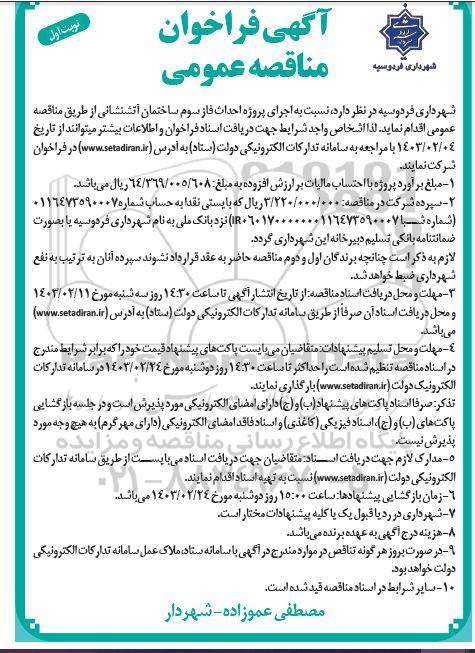 نوبت اول
آگهی فراخوان
مناقصه عمومی
شهرداری فردوسیه
شهرداری فردوسیه در نظر دارد، نسبت به اجرای پروژه احداث فاز سوم ساختمان آتشنشانی از طریق مناقصه
عمومی اقدام نماید. لذا اشخاص واجد شرایط جهت دریافت اسناد فراخوان و اطلاعات بیشتر میتوانند از تاریخ
۱۴۰۳/۰۲/۰۴ با مراجعه به سامانه تدارکات الکترونیکی دولت (ستاد) به آدرس (www.setadiran.ir) در فراخوان
شرکت نمایند.
۱-مبلغ برآورد پروژه با احتساب مالیات بر ارزش افزوده به مبلغ: ۶۴/۳۶۹/۰۰۵/۶۰۸ ریال می‌باشد.
۲-سپرده شرکت در مناقصه: ۳/۲۲۰/۰۰۰/۰۰۰ ریال که بایستی نقدا به حساب شماره ۰۱۱۶۴۷۳۵۹۰۰۰۷
(شماره شبا IR۰۶۰۱۷۰۰۰۰۰۰۰۱۱۶۴۷۳۵۹۰۰۰۷) نزد بانک ملی به نام شهرداری فردوسیه یا بصورت
ضمانتنامه بانکی تسلیم دبیرخانه این شهرداری گردد.
لازم به ذکر است چنانچه برندگان اول و دوم مناقصه حاضر به عقد قرارداد نشوند سپرده آنان به ترتیب به نفع
شهرداری ضبط خواهد شد.
۳-مهلت و محل دریافت اسناد مناقصه: از تاریخ انتشار آگهی تا ساعت ۱۴:۳۰ روز سه شنبه مورخ ۱۴۰۳/۰۲/۱۱
و محل دریافت اسناد آن صرفا از طریق سامانه تدارکات الکترونیکی دولت (ستاد) به آدرس (www.setadiran.ir)
می‌باشد.
۴-مهلت و محل تسلیم پیشنهادات: متقاضیان می‌بایست پاکت‌های پیشنهاد قیمت خود را که برابر شرایط مندرج
در اسناد مناقصه تنظیم شده است را حداکثر تا ساعت ۱۴:۳۰ روز دوشنبه مورخ ۱۴۰۳/۰۲/۲۴ در سامانه تدارکات
الکترونیک دولت (www.setadiran.ir) بارگذاری نمایند.
تذکر: صرفا اسناد پاکت‌های پیشنهاد (ب) و (ج) دارای امضای الکترونیکی مورد پذیرش است و در جلسه بازگشایی
پاکت‌های (ب) و (ج)، اسناد فیزیکی (کاغذی) و اسناد فاقد امضای الکترونیکی (دارای مهر گرم) به هیچ وجه مورد
پذیرش نیست.
۵-مدارک لازم جهت دریافت اسناد: متقاضیان جهت دریافت اسناد می‌بایست از طریق سامانه تدارکات
الکترونیکی دولت (www.setadiran.ir) نسبت به تهیه اسناد اقدام نمایند.
۶-زمان بازگشایی پیشنهادها: ساعت ۱۵:۰۰ روز دوشنبه مورخ ۱۴۰۳/۰۲/۲۴ می‌باشد.
۷-شهرداری در رد یا قبول یک یا کلیه پیشنهادات مختار است.
۸-هزینه درج آگهی به عهده برنده می‌باشد.
۹-در صورت بروز هرگونه تناقص در موارد مندرج در آگهی با سامانه ستاد، ملاک عمل سامانه تدارکات الکترونیکی
دولت خواهد بود.
۱۰-سایر شرایط در اسناد مناقصه قید شده است.
مصطفی عموزاده-شهردار